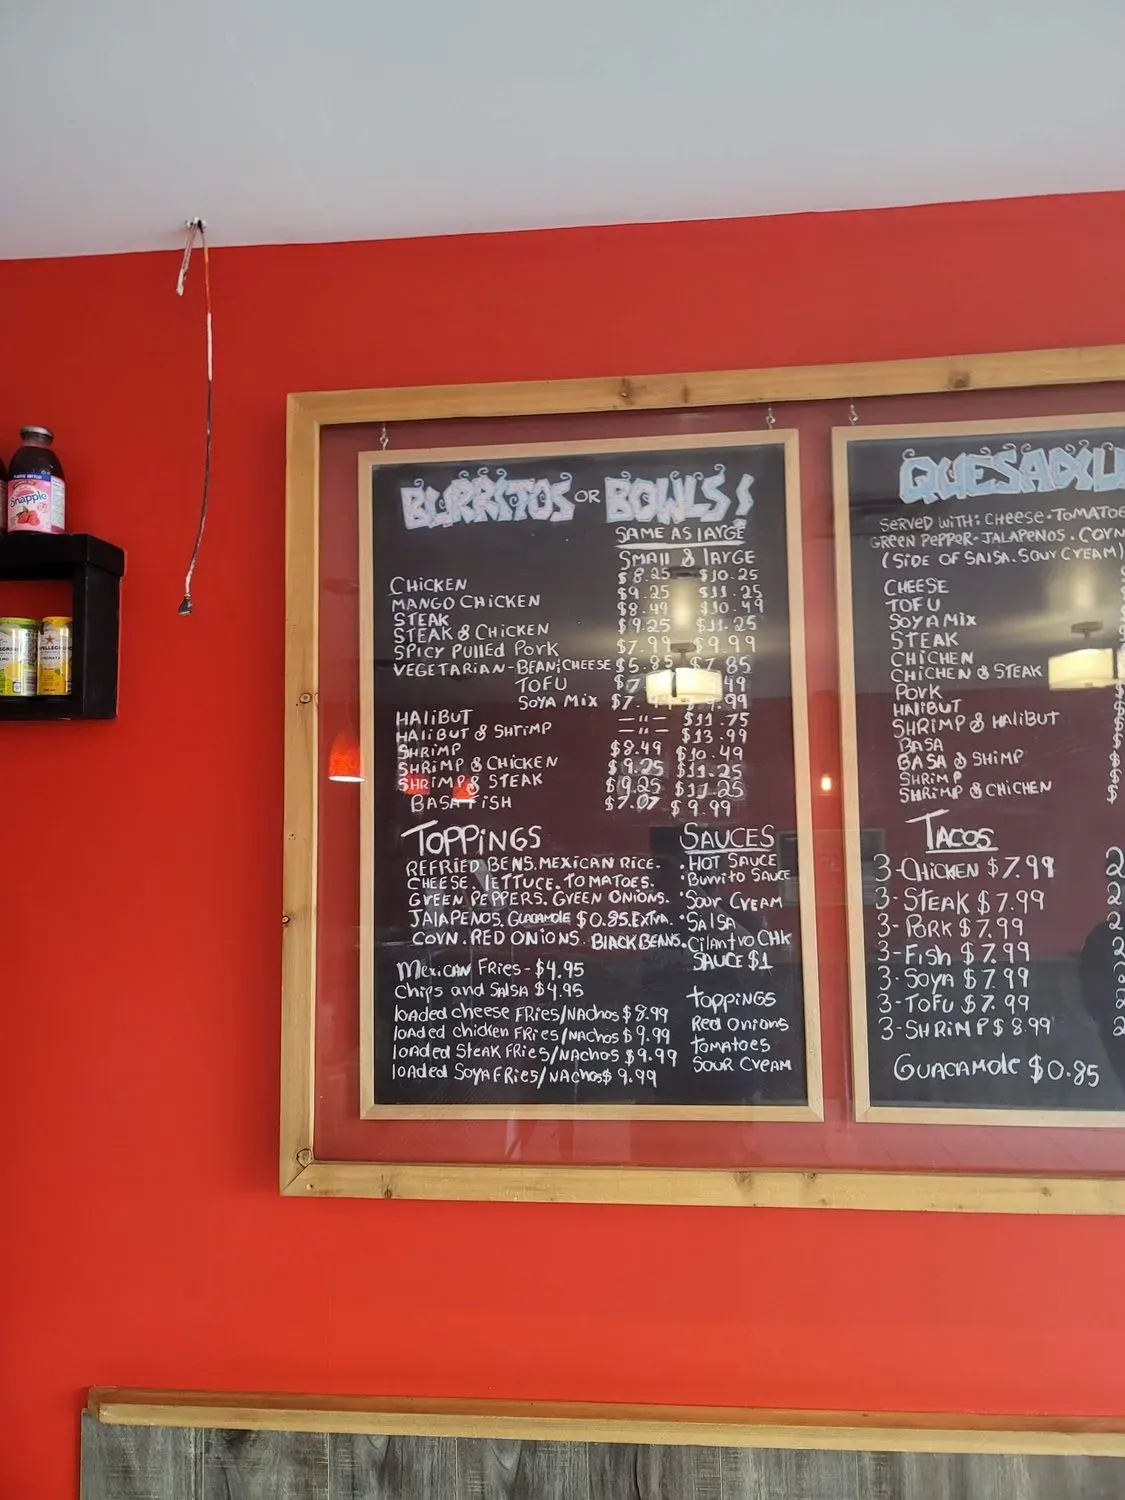 Snapple
BURRITOS OR BOWLS!
SAME AS lARGE
SMAll & lARGE
CHICKEN $8.25 $10.25
MANGO CHICKEN $9.25 $11.25
STEAK $8.49 $10.49
STEAK & CHICKEN $9.25 $11.25
SPICY PUllED PORK $7.99 $9.99
VEGETARIAN-BEAN;CHEESE $5.85 $7.85
TOFU
SOYA MIX
HALIBUT —"— $11.75
HALIBUT & SHRIMP —"— $13.99
SHRIMP $8.49 $10.49
SHRIMP & CHICKEN $9.25 $11.25
SHRIMP & STEAK $9.25 $11.25
BASA FISH $9.99
TOPPINGS
REFRIED BENS. MEXICAN RICE.
CHEESE. lETTUCE. TOMATOES.
GREEN PEPPERS. GREEN ONIONS.
JALAPENOS. GUACAMOLE $0.85.EXTRA.
CORN. RED ONIONS. BlACK BEANS.
SAUCES
.HOT SAUCE
.Burrito SAUCE
.SOUR CREAM
.SALSA
.Cilantro CHK
SAUCE $1
MEXICAN FRIES - $4.95
CHIPS and SALSA $4.95
loaded cheese FRies/NAchos $8.99
loaded chicken FRies/NAchos $9.99
loaded Steak FRies/NAchos $9.99
loaded SOYA FRies/NAchos $9.99
toppings
Red Onions
tomatoes
SOUR CREAM
SERVED WITH: CHEESE-TOMATOE
GREEN PEPPER-JALAPENOS. CORN
(SIDE OF SALSA. SOUR CREAM)
CHEESE
TOFU
SOYA MIX
STEAK
CHICKEN
CHICKEN & STEAK
PORK
HALIBUT
SHRIMP & HALIBUT
BASA
BASA & SHIMP
SHRIMP
SHRIMP & CHICKEN
TACOS
3-CHICKEN $7.99
3-STEAK $7.99
3-PORK $7.99
3-FISH $7.99
3-SOYA $7.99
3-TOFU $7.99
3-SHRIMP $8.99
GUACAMOLE $0.85